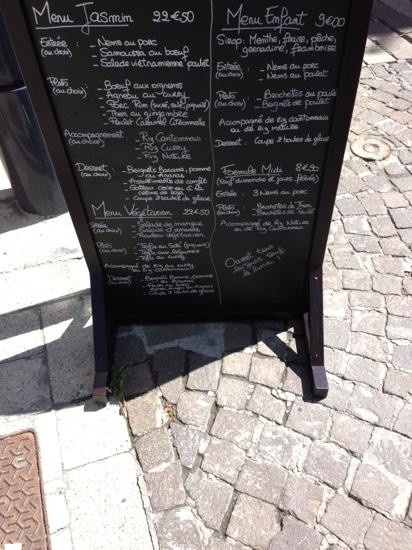 Menu Jasmin 22€50
Entrée : - Nems au porc
(au choix) - Samoussa au boeuf
- Salade vietnamienne poulet
Plats : - Boeuf aux oignons
(au choix) - Agneau au curry
- Porc Kim (sucré, salé, piquant)
- Thon au gingembre
- Poulet Caramel Citronnelle
Accompagnement
(au choix) - Riz Cantonnais
- Riz Curry
- Riz Nature
Dessert : - Beignets Banane, pomme
(au choix) ou Ananas
- Assortiments de confit
- Gateau coco ou à la
- Coupe 2 boules de glace
Menu Végétarien 22€50
Entrée : - Salade de mangue
(au choix)
- Rouleau végétarien
Plats : - Tofu au Saté (piquant)
(au choix) - Tofu au légumes
- Tofu au curry
Accompagné de riz au curry
ou riz cantonnais
Dessert : - Beignets Banane, pomme
(au choix) ou ananas
- Coupe 2 boules de glace
Menu Enfant 9€00
Sirop : Menthe, fraise, pêche,
grenadine, framboise
Entrée : - Nems au porc
(au choix) - Nems au poulet
Plats : - Brochettes au poulet
(au choix) - Beignets de poulet
Accompagné de riz cantonnais
ou de riz nature
Dessert : Coupe 2 boules de glace
Formule Midi 8€90
(sauf dimanche et jours fériés)
Entrée : 3 Nems au porc
Plats : - Brochettes de Thon
(au choix) - Brochettes de
Accompagné de Riz Nature
ou de riz Cantonnais
Ouvert tous
les jours sauf
le lundi